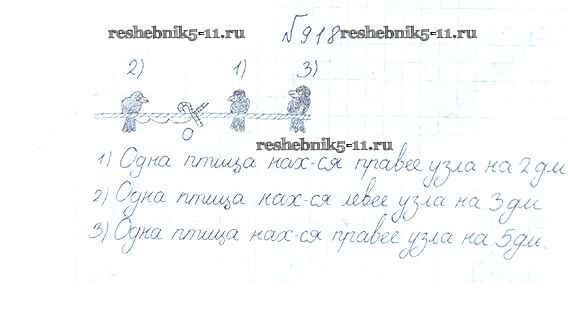 №918
reshebnik5-11.ru reshebnik5-11.ru
2) 1) 3)
0
reshebnik5-11.ru
1) Одна птица нах-ся правее узла на 2 дм
2) Одна птица нах-ся левее узла на 3 дм
3) Одна птица нах-ся правее узла на 5 дм.